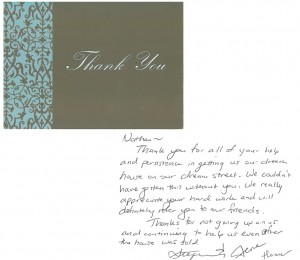 Thank You
Nathan~
Thank you for all of your help
and persistence in getting us our dream
house on our dream street. We couldn't
have gotten this without you. We really
appreciate your hard work and will
definitely refer you to our friends.
Thanks for not giving up on us
and continuing to help us even after
the house was sold.